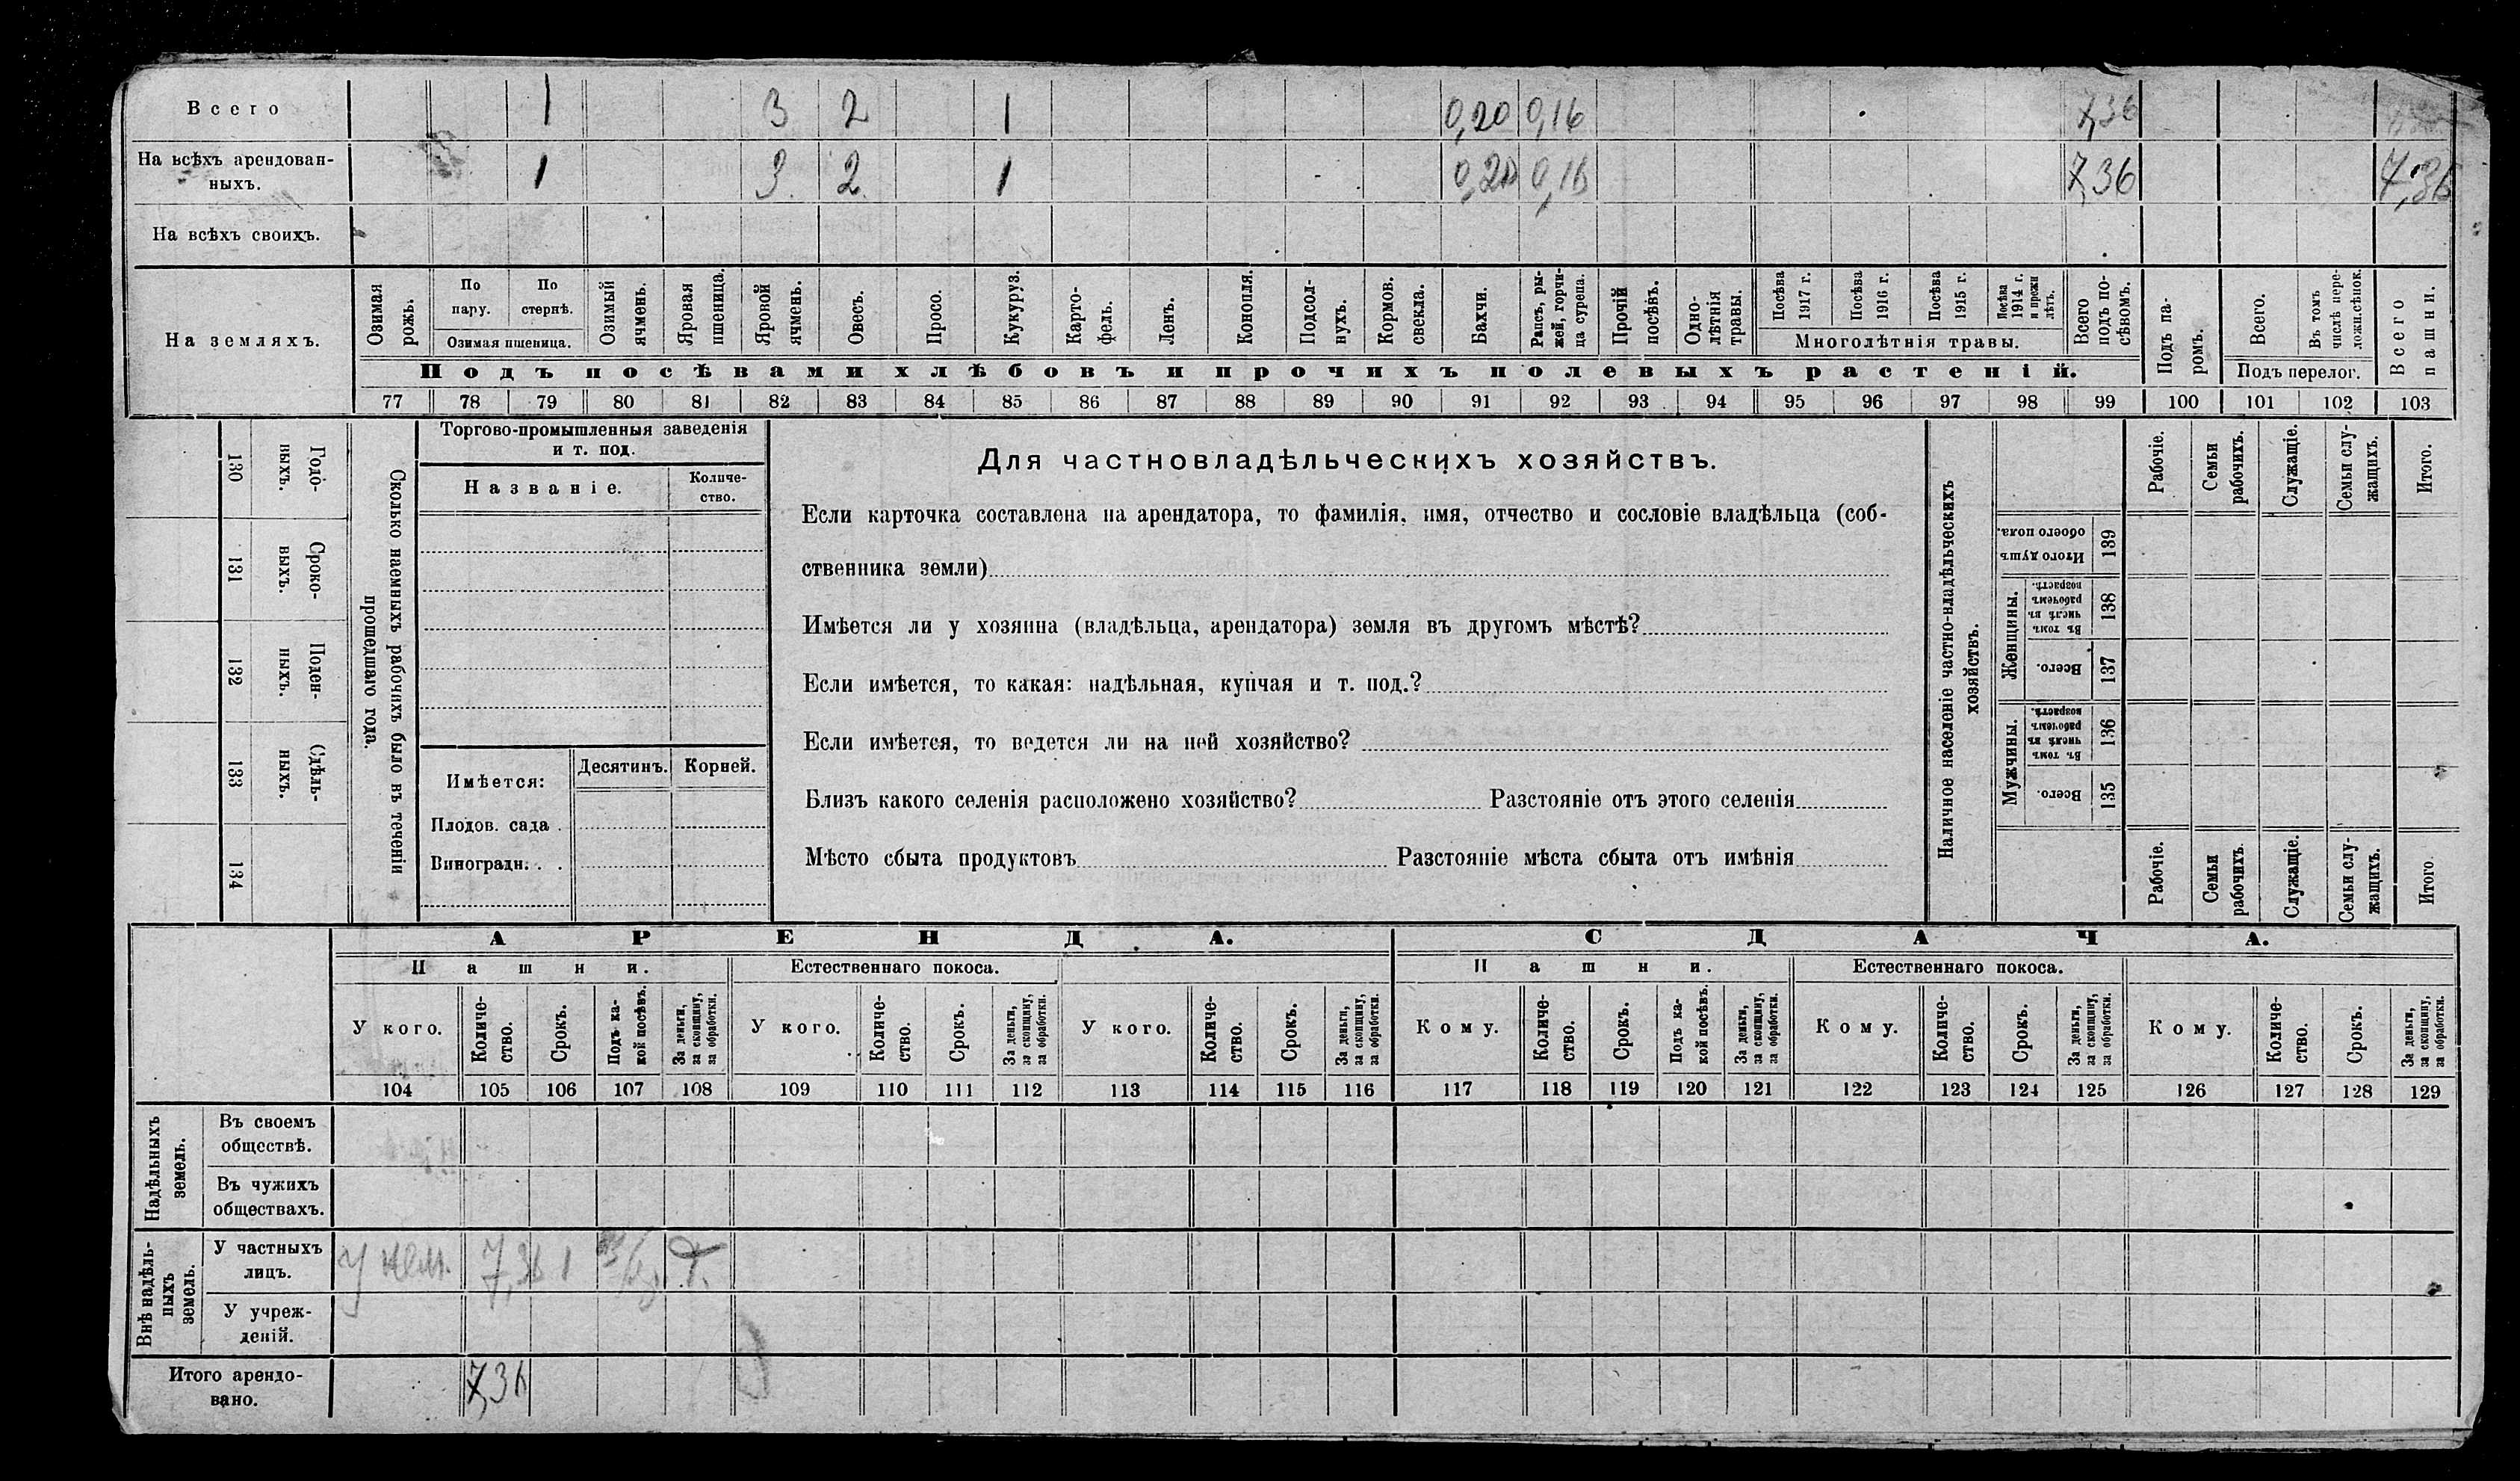 Всего 1 3 2 1 0,20 0,16 7,36
На всѣхъ арендован-
ныхъ. 1 3 2 1 0,20 0,16 7,36 7,36
На всѣхъ своихъ.
На земляхъ.
Озимая рожь.
По пару.
По стернѣ.
Озимая пшеница.
Озимый ячмень.
Яровая пшеница.
Яровой ячмень.
Овесъ.
Просо.
Кукуруз.
Карто-
фель.
Ленъ.
Конопля.
Подсол-
нухъ.
Кормов.
свекла.
Бахчи.
Рапсъ, ры-
жей, горчи-
ца сурепа.
Прочій посѣвъ.
Одно-
лѣтнія
травы.
Посѣва 1917 г.
Посѣва 1916 г.
Посѣва 1915 г.
Посѣва 1914 г. и прежн лѣтъ.
Многолѣтнія травы.
Всего подъ по-
сѣвомъ.
Подъ па-
ромъ.
Всего.
Въ томъ числѣ пере-
лож.сѣнок.
Подъ перелог.
Всего пашни.
Подъ посѣвами хлѣбовъ и прочихъ полевыхъ растеній.
77 78 79 80 81 82 83 84 85 86 87 88 89 90 91 92 93 94 95 96 97 98 99 100 101 102 103
130 Годо-
выхъ.
131 Сроко-
выхъ.
132 Поден-
ныхъ.
133 Сдѣль-
ныхъ.
134
Сколько наемныхъ рабочихъ было въ теченіи
прошедшаго года.
Торгово-промышленныя заведенія
и т. под.
Названіе.
Количе-
ство.
Имѣется:
Десятинъ.
Корней.
Плодов. сада .
Виноградн. . .
Для частновладѣльческихъ хозяйствъ.
Если карточка составлена на арендатора, то фамилія, имя, отчество и сословіе владѣльца (соб-
ственника земли)
Имѣется ли у хозяина (владѣльца, арендатора) земля въ другомъ мѣстѣ?
Если имѣется, то какая: надѣльная, купчая и т. под.?
Если имѣется, то ведется ли на ней хозяйство?
Близъ какого селенія расположено хозяйство? Разстояніе отъ этого селенія
Мѣсто сбыта продуктовъ Разстояніе мѣста сбыта отъ имѣнія
Наличное населеніе частно-владѣльческихъ
хозяйствъ.
Рабочіе.
Семьи рабочихъ.
Служащіе.
Семьи слу-
жащихъ.
Итого.
Итого душъ обоего пола. 139
Женщины.
Въ томъ числѣ въ рабочемъ возрастѣ. 138
Всего. 137
Мужчины.
Въ томъ числѣ въ рабочемъ возрастѣ. 136
Всего. 135
Рабочіе.
Семьи рабочихъ.
Служащіе.
Семьи слу-
жащихъ.
Итого
АРЕНДА. СДАЧА.
Пашни. Естественнаго покоса. Пашни. Естественнаго покоса.
У кого.
Количе-
ство.
Срокъ.
Подъ ка-
кой посѣвъ.
За деньги, за скопщину, за обработки.
У кого.
Количе-
ство.
Срокъ.
За деньги, за скопщину, за обработки.
У кого.
Количе-
ство.
Срокъ.
За деньги, за скопщину, за обработки.
Кому.
Количе-
ство.
Срокъ.
Подъ ка-
кой посѣвъ.
За деньги, за скопщину, за обработки.
Кому.
Количе-
ство.
Срокъ.
За деньги, за скопщину, за обработки.
Кому.
Количе-
ство.
Срокъ.
За деньги, за скопщину, за обработки.
104 105 106 107 108 109 110 111 112 113 114 115 116 117 118 119 120 121 122 123 124 125 126 127 128 129
Надѣльныхъ
земель.
Въ своемъ
обществѣ.
Въ чужихъ
обществахъ.
Внѣ надѣль-
ныхъ
земель.
У частныхъ
лицъ. 7,36 1
У учреж-
деній.
Итого арендо-
вано. 7,36